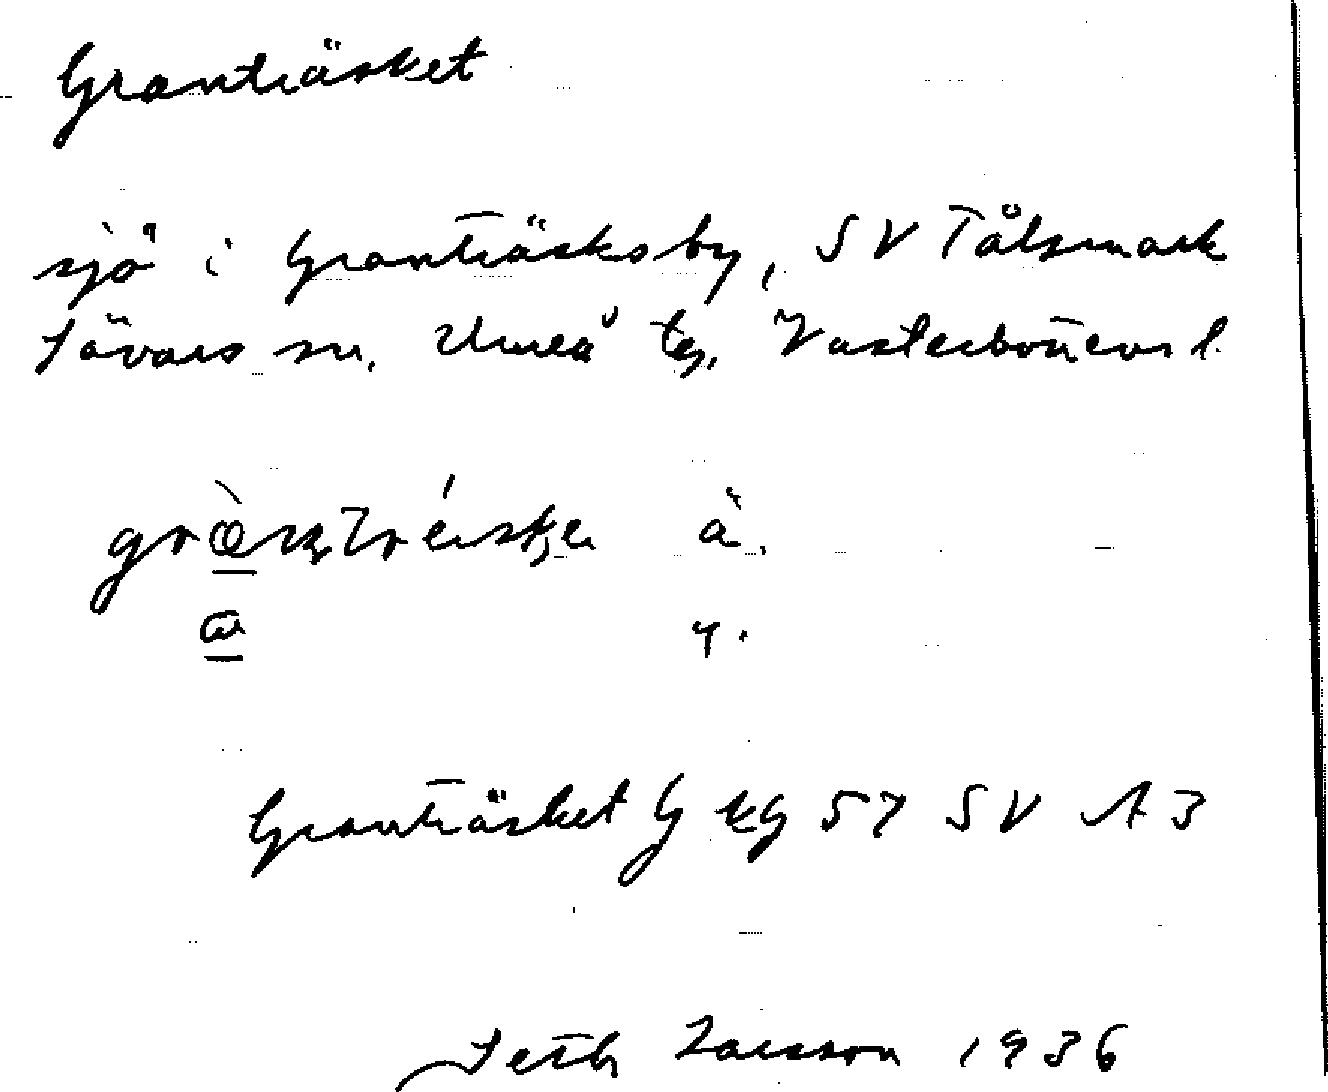 Granträsket
sjö i Granträsks by, SV Tålsmark
Sävars sn. Umeå tg. Västerbottens l.
à.
Granträsket G kg 57 SV A3
Seth Larsson 1936